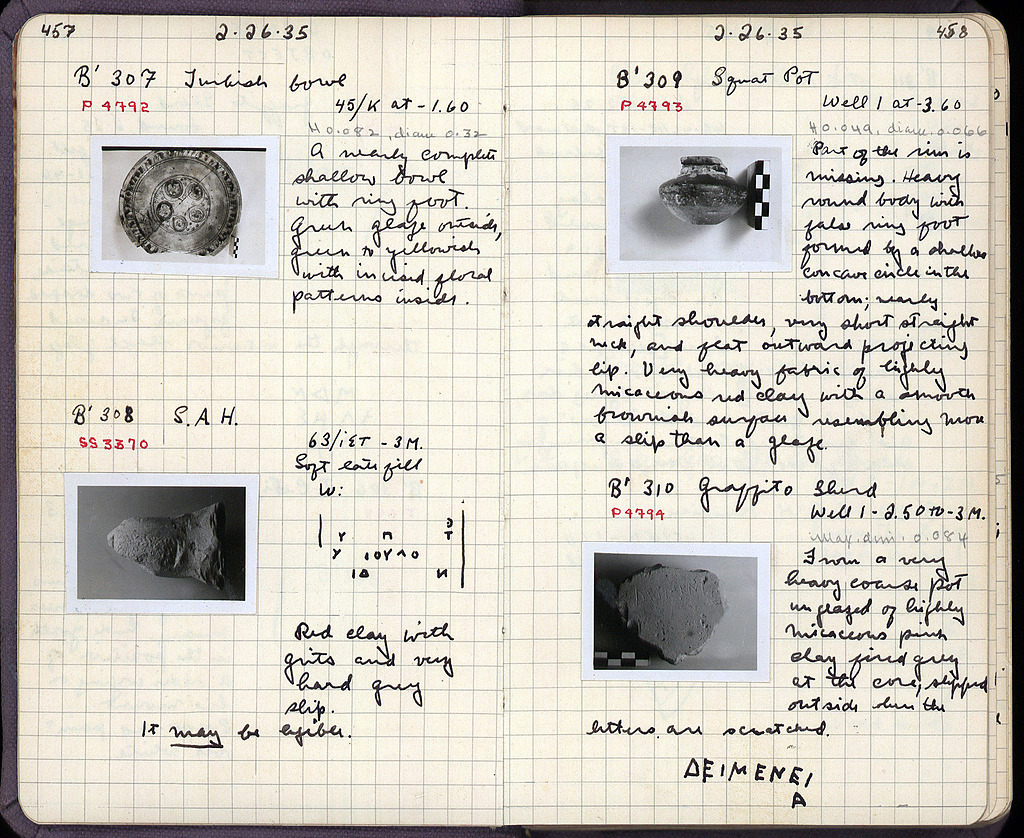 457
2·26·35
B' 307 Turkish bowl
P 4792
45/K at -1.60
H 0.082, diam 0.32
A nearly complete
shallow bowl
with ring foot.
Green glaze outside,
green to yellowish
with incised floral
patterns inside.
B' 308 S.A.H.
SS 3370
63/ΙΣΤ - 3M.
Soft late fill
W:
Red clay with
grits and very
hard grey
slip.
It may be legible.
2·26·35
458
B' 309 Squat Pot
P 4793
Well 1 at -3.60
H 0.049, diam. 0.066
Part of the rim is
missing. Heavy
round body with
false ring foot
formed by a shallow
concave circle in the
bottom; nearly
straight shoulder, very short straight
neck, and flat outward projecting
lip. Very heavy fabric of highly
micaceous red clay with a smooth
brownish surface resembling more
a slip than a glaze.
B' 310 Graffito Sherd
P 4794
Well 1 - 2.50 to -3M.
Max. dim. 0.084
From a very
heavy coarse pot
unglazed of highly
micaceous pink
clay fired grey
at the core; slipped
outside where the
letters are scratched.
ΔΕΙΜΕΝΕΙ
Α